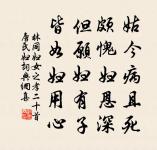 姑今病且死
頗愧婦恩深
但願婦有子
皆如婦用心
林同婦女之孝二十首
唐氏婦詞典網集